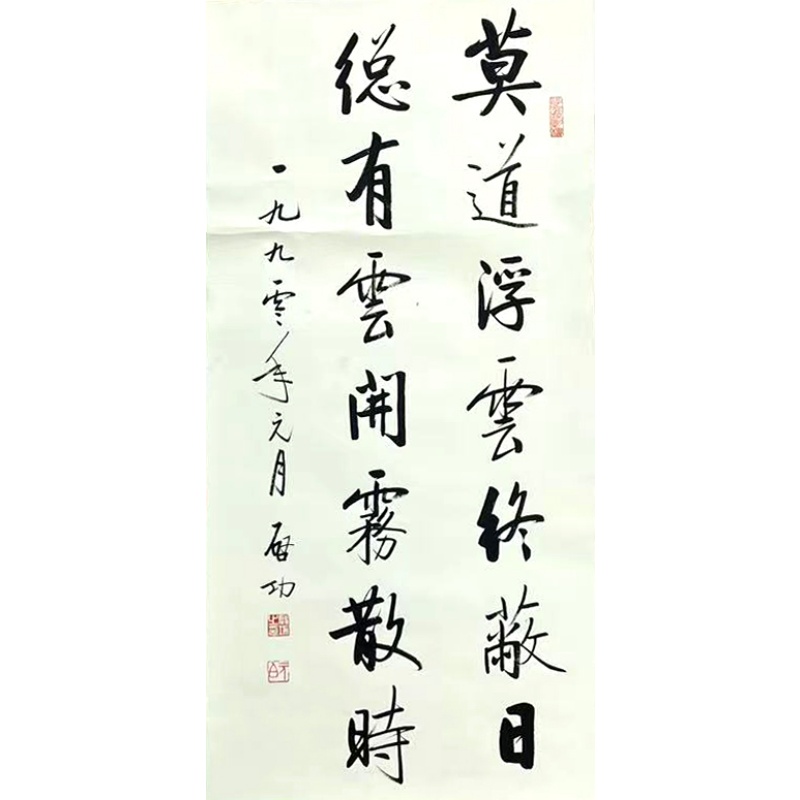 莫道浮雲終蔽日
總有雲開霧散時
一九九零年元月 啓功